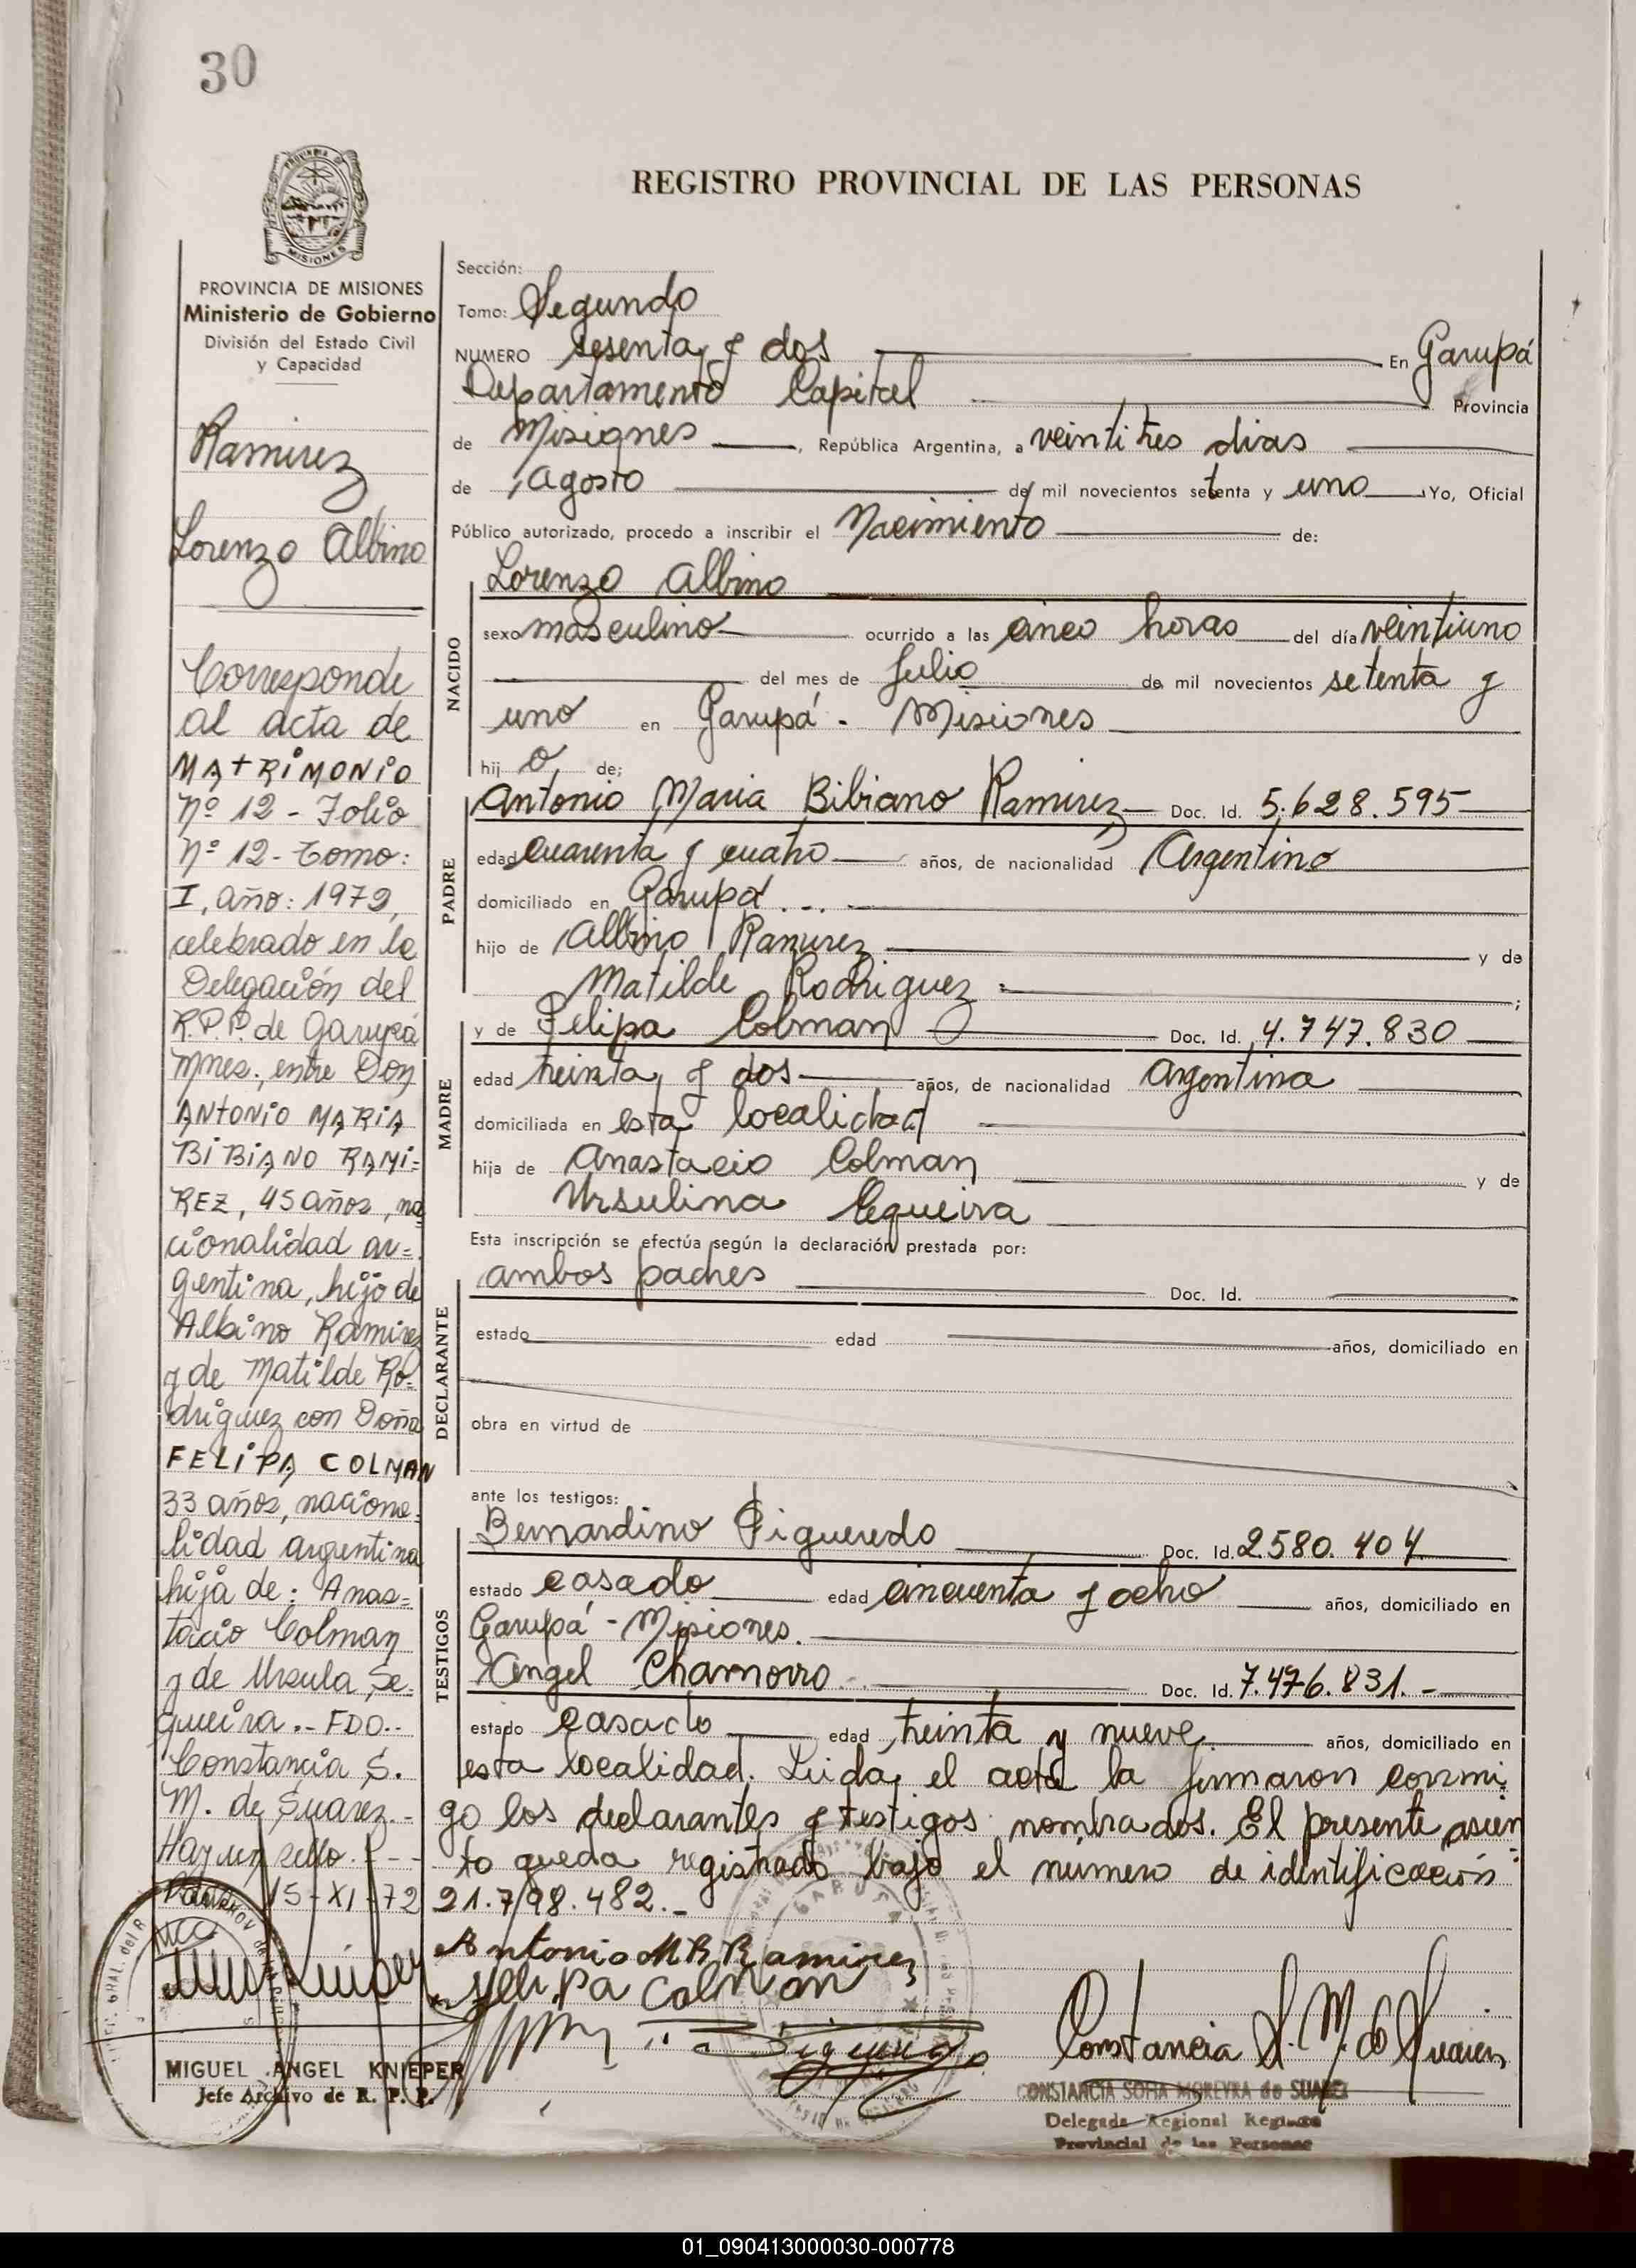 30
REGISTRO PROVINCIAL DE LAS PERSONAS
MISIONES
PROVINCIA DE MISIONES
Ministerio de Gobierno
División del Estado Civil
y Capacidad
Ramirez
Lorenzo Albino
Corresponde
al acta de
MATRIMONIO
Nº 12 - Folio
Nº 12 - Tomo:
I, año: 1972,
celebrado en la
Delegación del
R.P.P. de Garupá
Mnes., entre Don
ANTONIO MARIA
BIBIANO RAMI=
REZ, 45 años, na
cionalidad ar=
gentina, hijo de
Albino Ramirez
y de Matilde Ro=
driguez con Doña
FELIPA COLMAN
33 años, naciona=
lidad argentina
hija de: Anas=
tacio Colman
y de Ursula Se=
queira.- FDO.-
Constancia S.
M. de Suarez.-
Hay un sello.---
15-XI-72
MIGUEL ANGEL KNIEPER
Jefe Archivo de R. P. P.
Sección:
Tomo: Segundo
NUMERO sesenta y dos En Garupá
Departamento Capital Provincia
de Misiones, República Argentina, a veintitres dias
de Agosto de mil novecientos setenta y uno Yo, Oficial
Público autorizado, procedo a inscribir el Nacimiento de:
NACIDO
Lorenzo Albino
sexo masculino ocurrido a las cinco horas del día veintiuno
del mes de Julio de mil novecientos setenta y
uno en Garupá - Misiones
hij o de;
PADRE
Antonio Maria Bibiano Ramirez Doc. Id. 5.628.595
edad cuarenta y cuatro años, de nacionalidad Argentino
domiciliado en Garupá...
hijo de Albino Ramirez y de
Matilde Rodriguez ;
MADRE
y de Felipa Colman Doc. Id. 4.747.830
edad treinta y dos años, de nacionalidad Argentina
domiciliada en esta localidad
hija de Anastacio Colman y de
Ursulina Cequeira
Esta inscripción se efectúa según la declaración prestada por:
DECLARANTE
ambos padres Doc. Id.
estado edad años, domiciliado en
obra en virtud de
ante los testigos:
TESTIGOS
Bernardino Figueredo Doc. Id. 2580.404
estado casado edad cincuenta y ocho años, domiciliado en
Garupá - Misiones.
Angel Chamorro Doc. Id. 7.476.831.-
estado casado edad treinta y nueve años, domiciliado en
esta localidad. Leida el acta la firmaron conmi
go los declarantes y testigos nombrados. El presente asien
to queda registrado bajo el número de identificación
21.798.482.-
Antonio M B Ramirez
Felipa Colman
Constancia S. M. de Suarez
CONSTANCIA SOFIA MOREYRA de SUAREZ
Delegada Regional Registro
Provincial de las Personas
01_090413000030-000778